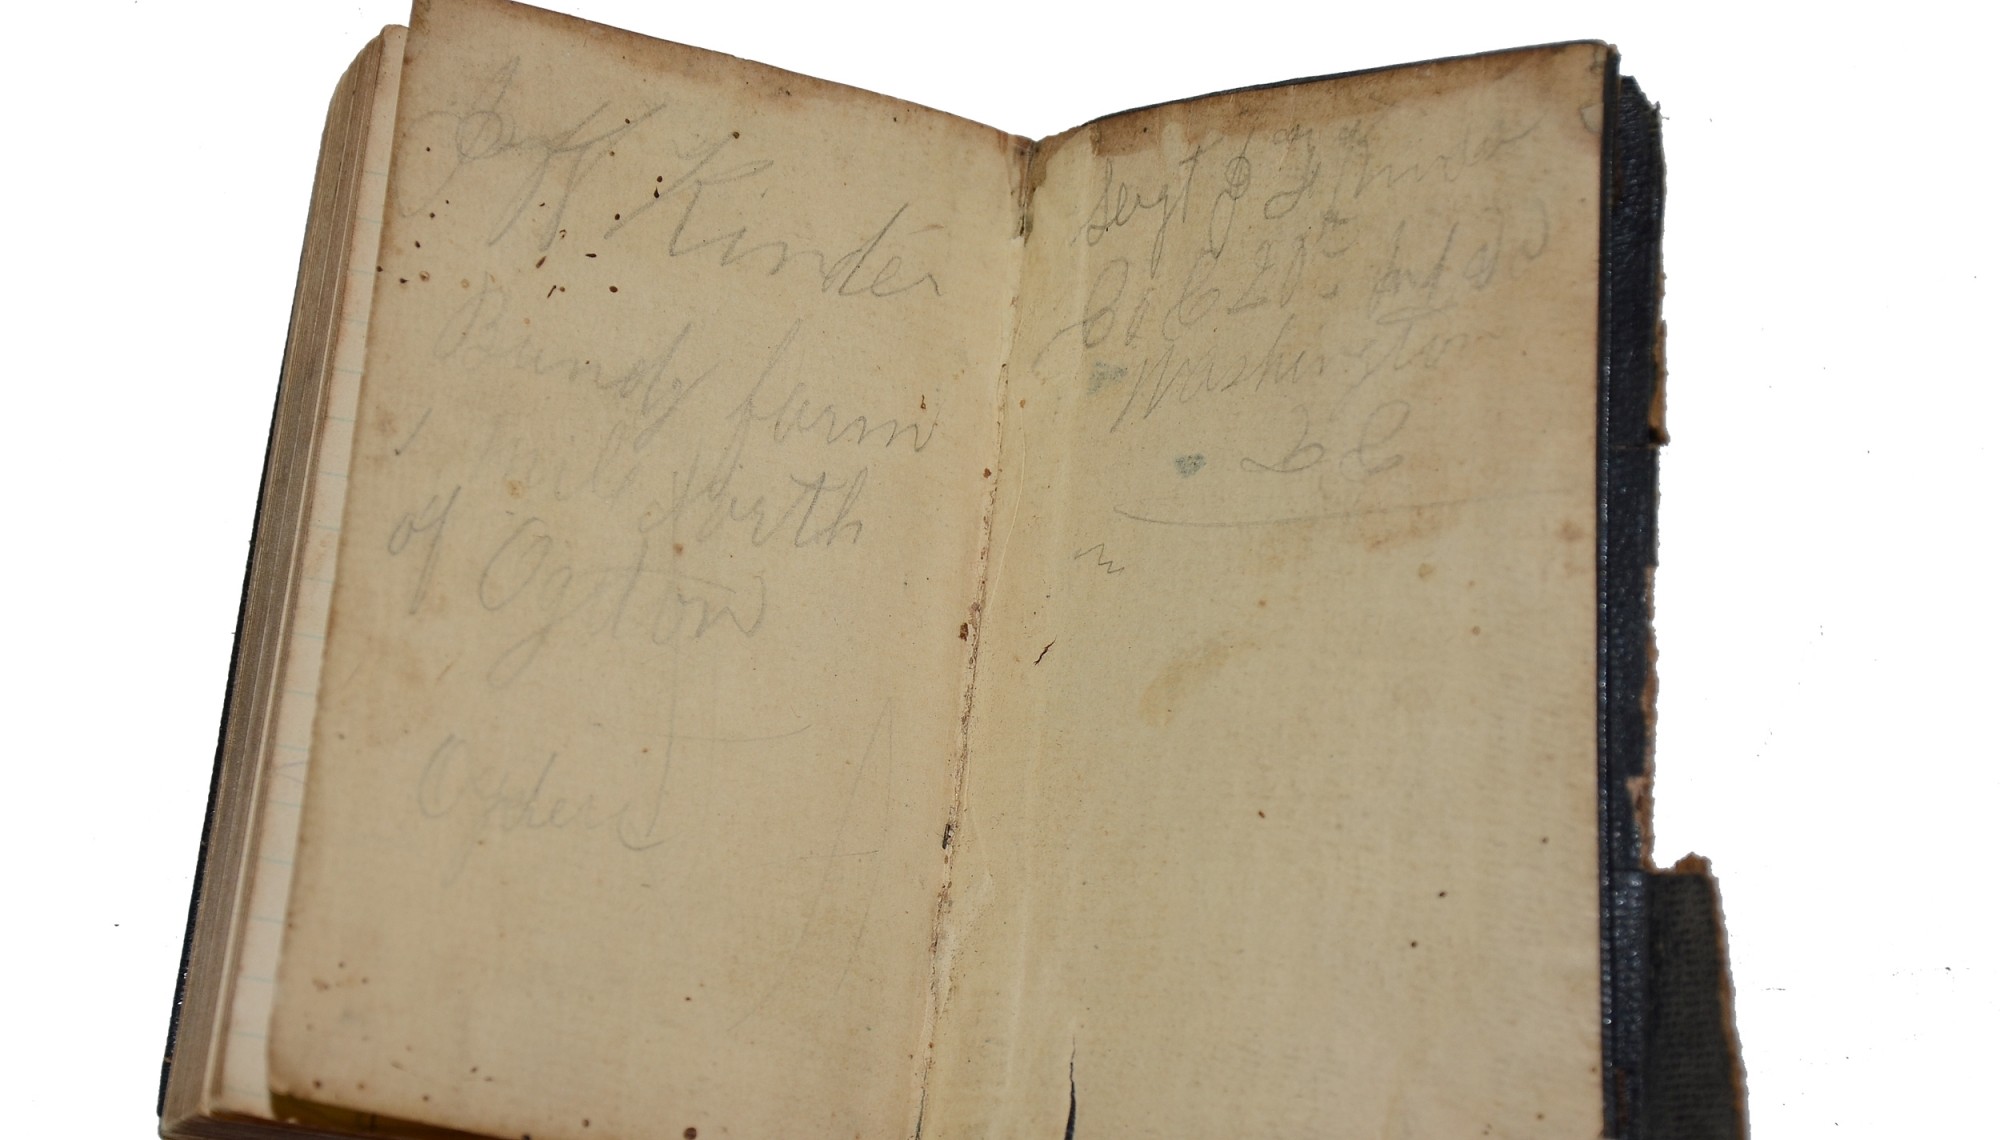 Jeff Kinder
Bundy farm
1 Mile North
of Ogdon
Ogden
Sergt D J Kinder
Co C 20th
Washington
D C